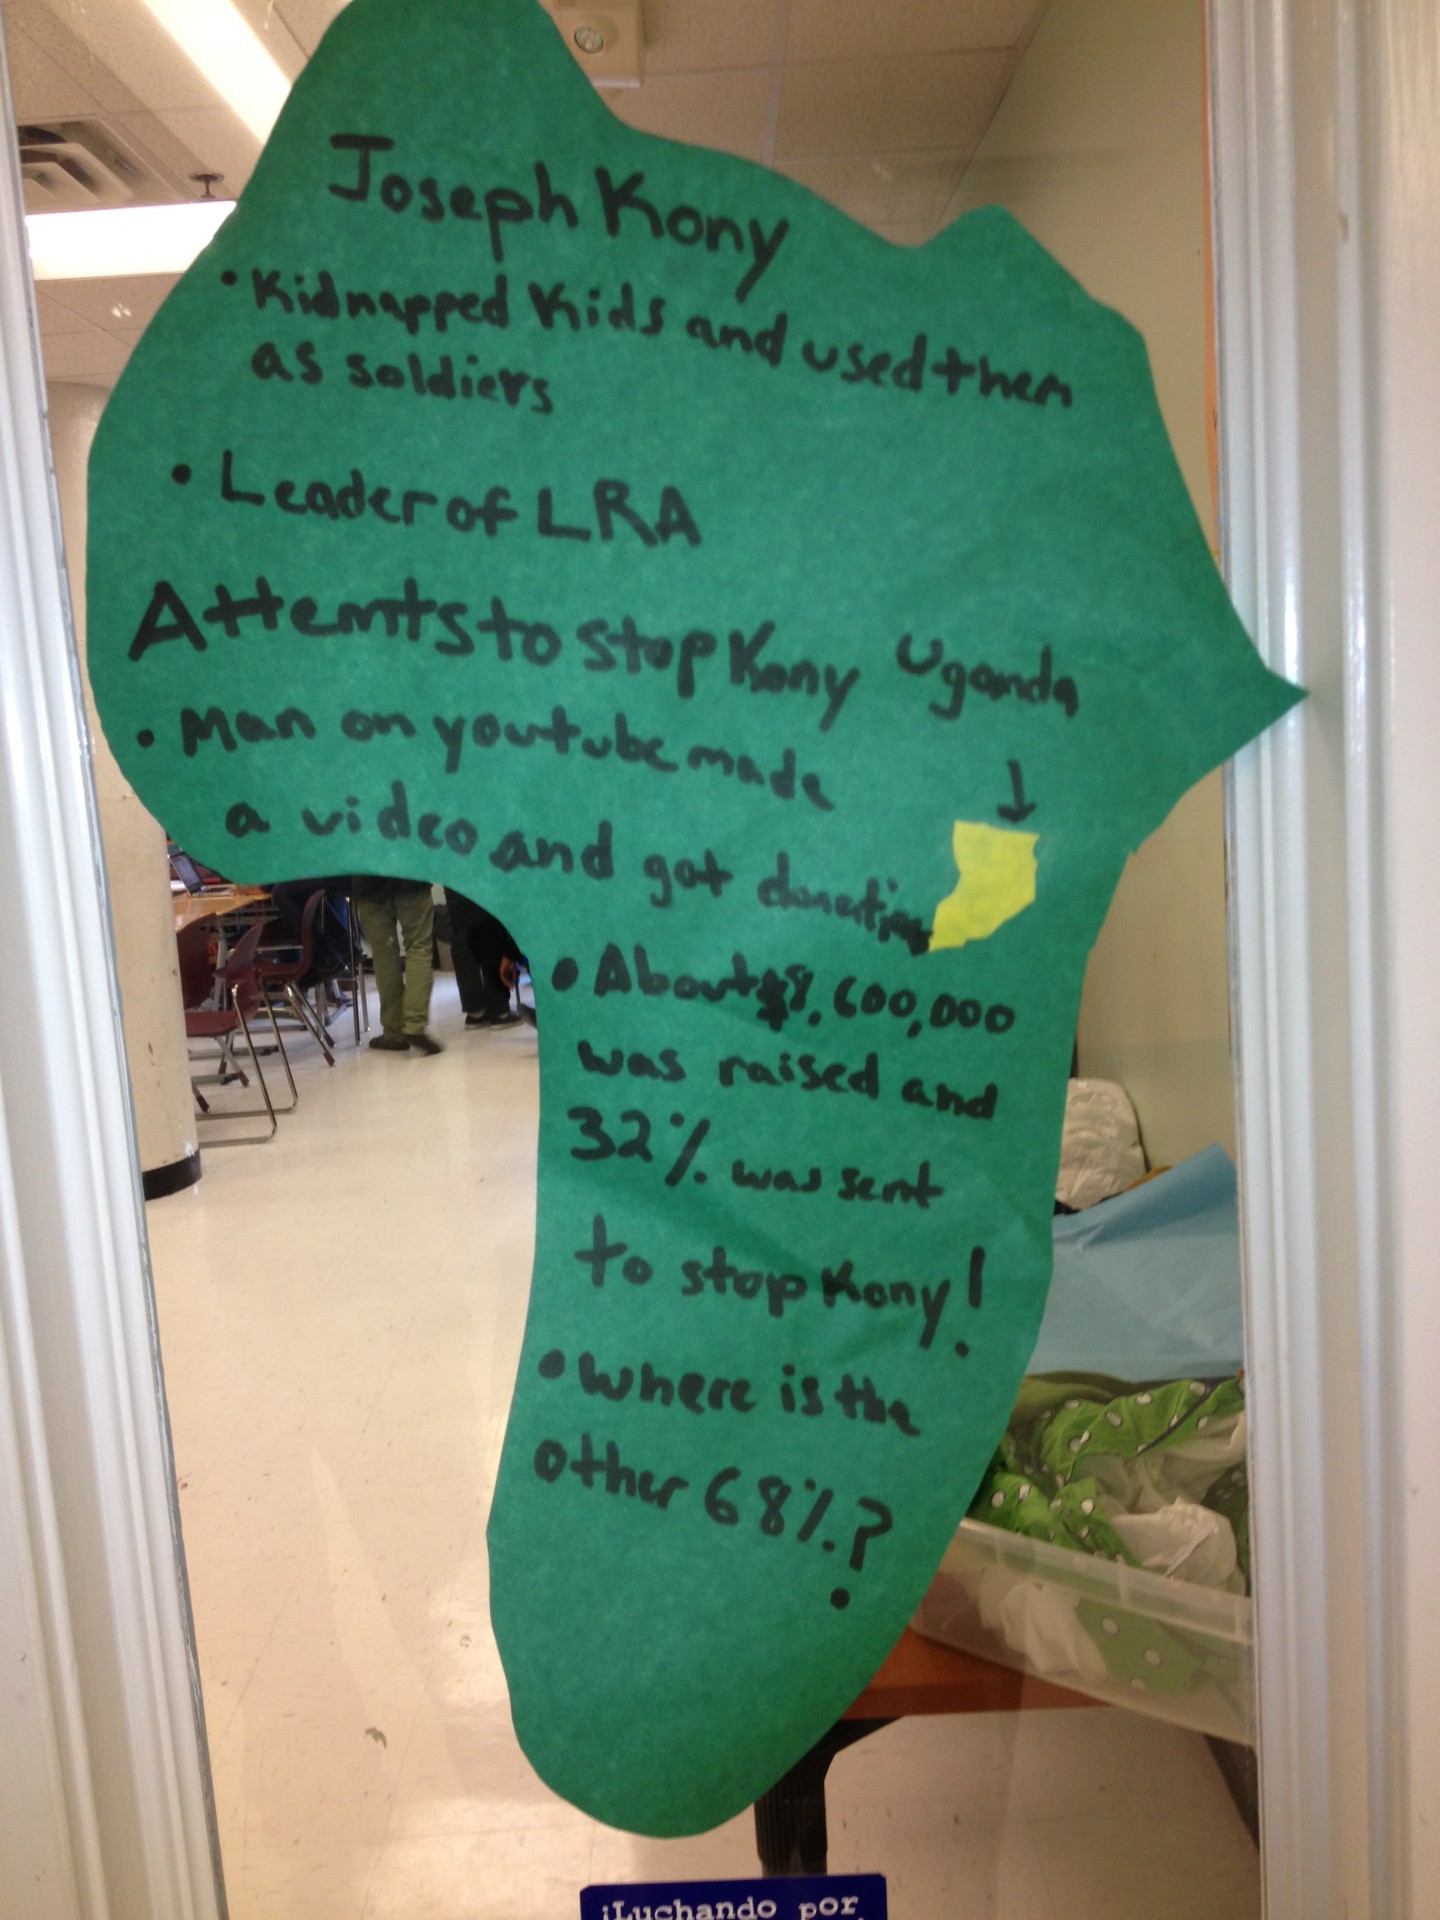 Joseph Kony
• Kidnapped Kids and used them
as soldiers
• Leader of LRA
Attemts to stop Kony
Uganda
• Man on youtube made
a video and got donations
• About $8,600,000
was raised and
32% was sent
to stop Kony!
• Where is the
other 68%?
¡Luchando por